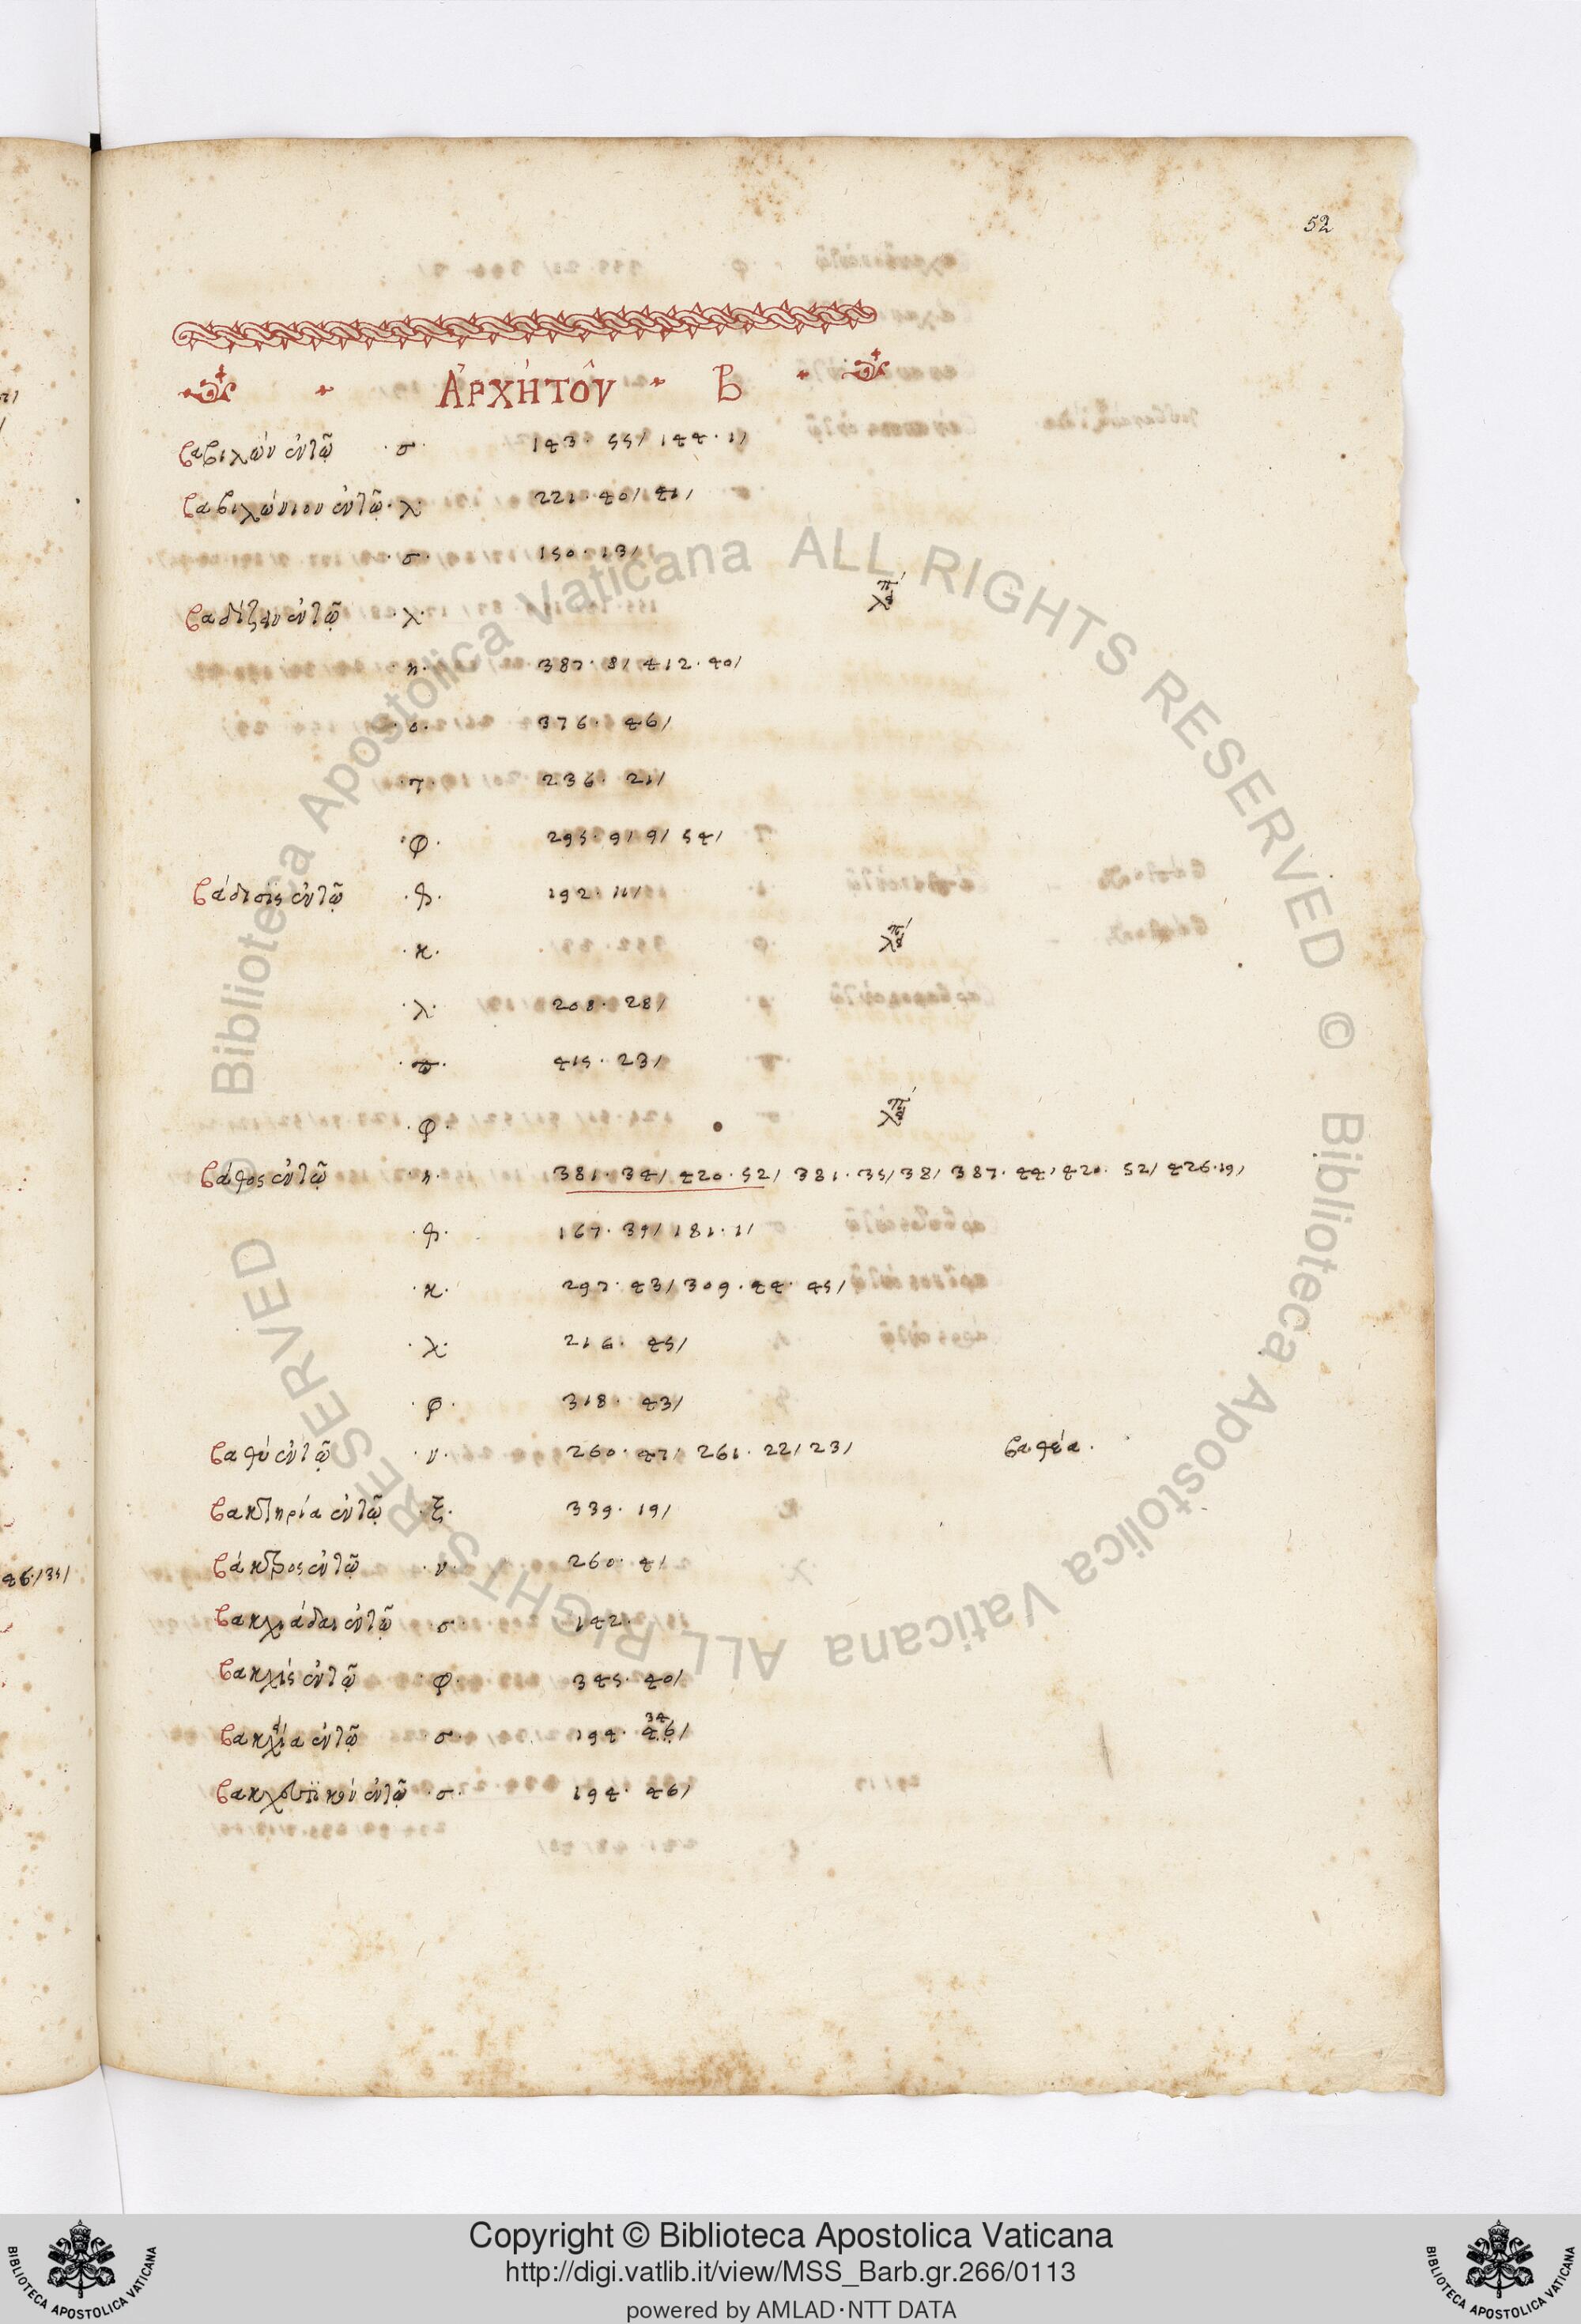 52
ἈΡΧῊ ΤΟῦ Β
βαβιλών ἐν τῷ · σ · 143 · 55/ 144 · 1/
βαβιλώνιον ἐν τῷ · λ · 221 · 40/ 41/
· σ · 150 · 13/
βαδίζειν ἐν τῷ · λ ·
· η · 387 · 8/ 412 · 40/
· ο · 376 · 46/
· τ · 236 · 21/
· φ · 295 · 9/ 9/ 54/
βάδισις ἐν τῷ · 192 · 11/
· κ ·
· λ · 208 · 28/
· π · 415 · 23/
· φ ·
βάθος ἐν τῷ · η · 381 · 34/ 420 · 52/ 381 · 35/ 38/ 387 · 44/ 420 · 52/ 426 · 19/
· 167 · 39/ 181 · 1/
· κ · 297 · 43/ 309 · 44 · 45/
· λ · 216 · 45/
· φ · 318 · 43/
βαθύ ἐν τῷ · ν · 260 · 47/ 261 · 22/ 23/ βαθέα ·
βακτηρία ἐν τῷ · ξ · 339 · 19/
βάκτρος ἐν τῷ · ν · 260 · 41
βακχιάδαι ἐν τῷ · σ · 142 ·
βακχίς ἐν τῷ · φ · 345 · 40/
34
ἐν τῷ · σ · 194 · 46/
ἐν τῷ · σ · 194 · 46/
46/ 35/
Biblioteca Apostolica Vaticana ALL RIGHTS RESERVED © Biblioteca Apostolica Vaticana ALL RIGHTS RESERVED ©
Copyright © Biblioteca Apostolica Vaticana
http://digi.vatlib.it/view/MSS_Barb.gr.266/0113
powered by AMLAD·NTT DATA
BIBLIOTECA APOSTOLICA VATICANA
BIBLIOTECA APOSTOLICA VATICANA